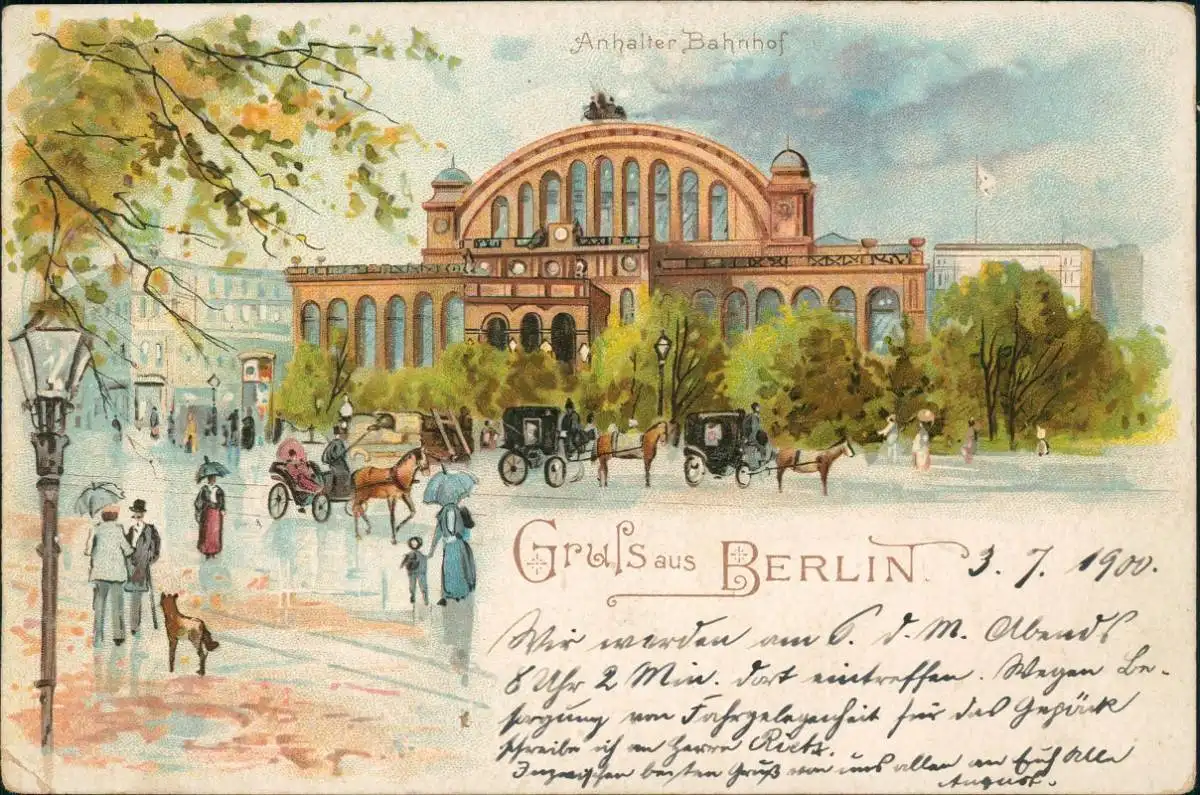 Anhalter Bahnhof
Gruſs aus BERLIN. 3. 7. 1900.
Wir werden am 6. d. M. Abends
8 Uhr 2 Min. dort eintreffen. Wegen Be-
sorgung von Fahrgelegenheit für das Gepäck
schreibe ich an Herrn Rietz.
Inzwischen besten Gruß von uns allen an Euch Alle
August.